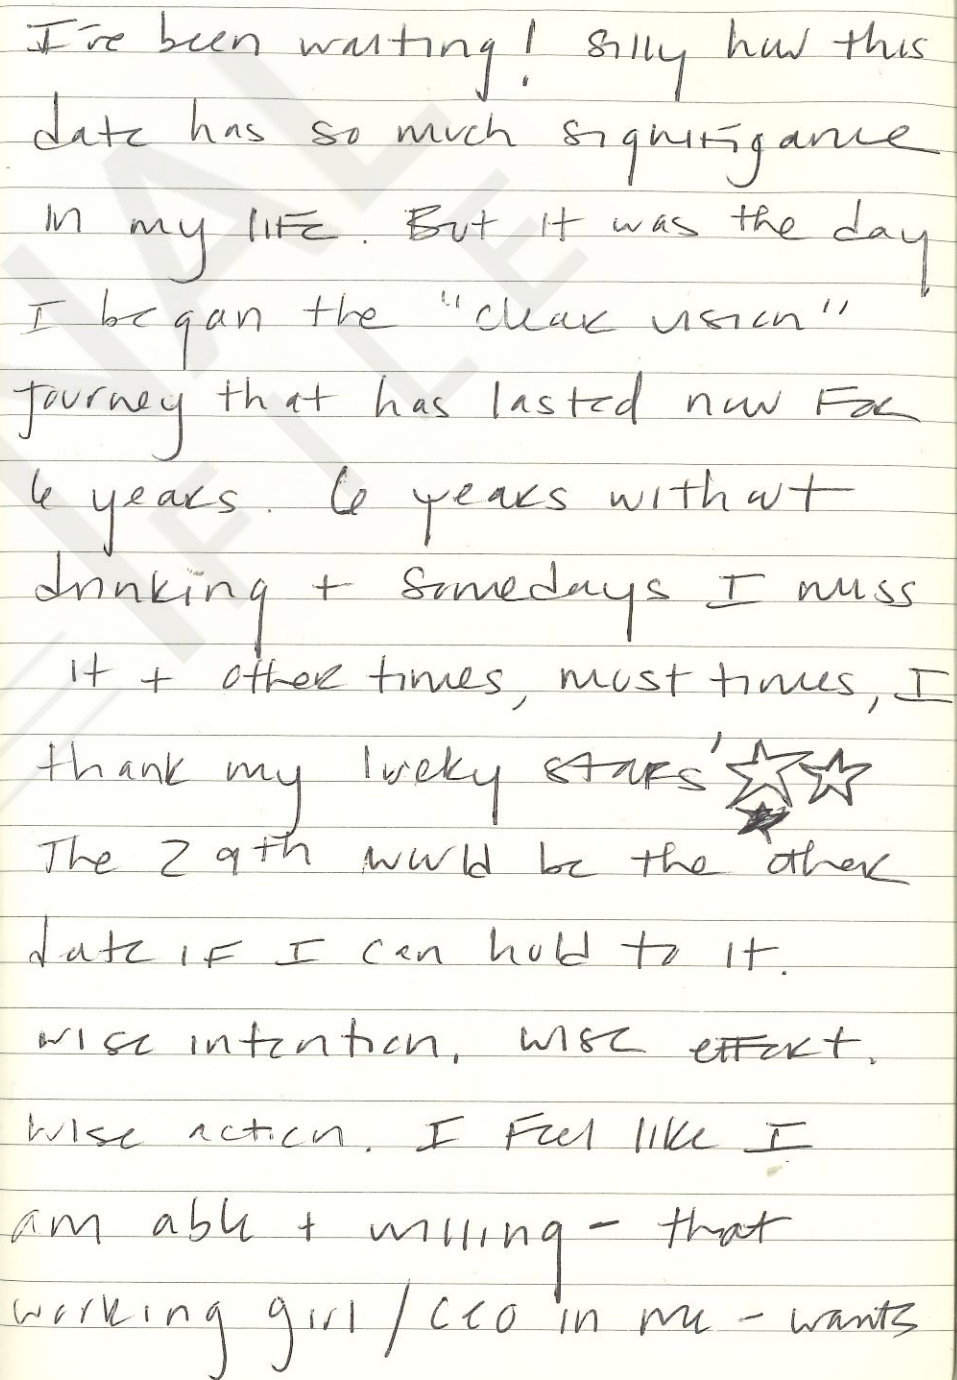 I've been waiting! Silly how this
date has so much signifigance
in my life. But it was the day
I began the "clear vision"
journey that has lasted now for
6 years. 6 years without
drinking + somedays I miss
it + other times, most times, I
thank my lucky stars'
The 29th would be the other
date if I can hold to it.
wise intention, wise effort.
wise action. I feel like I
am able + willing - that
working girl/CEO in me - wants
NAL
FILE